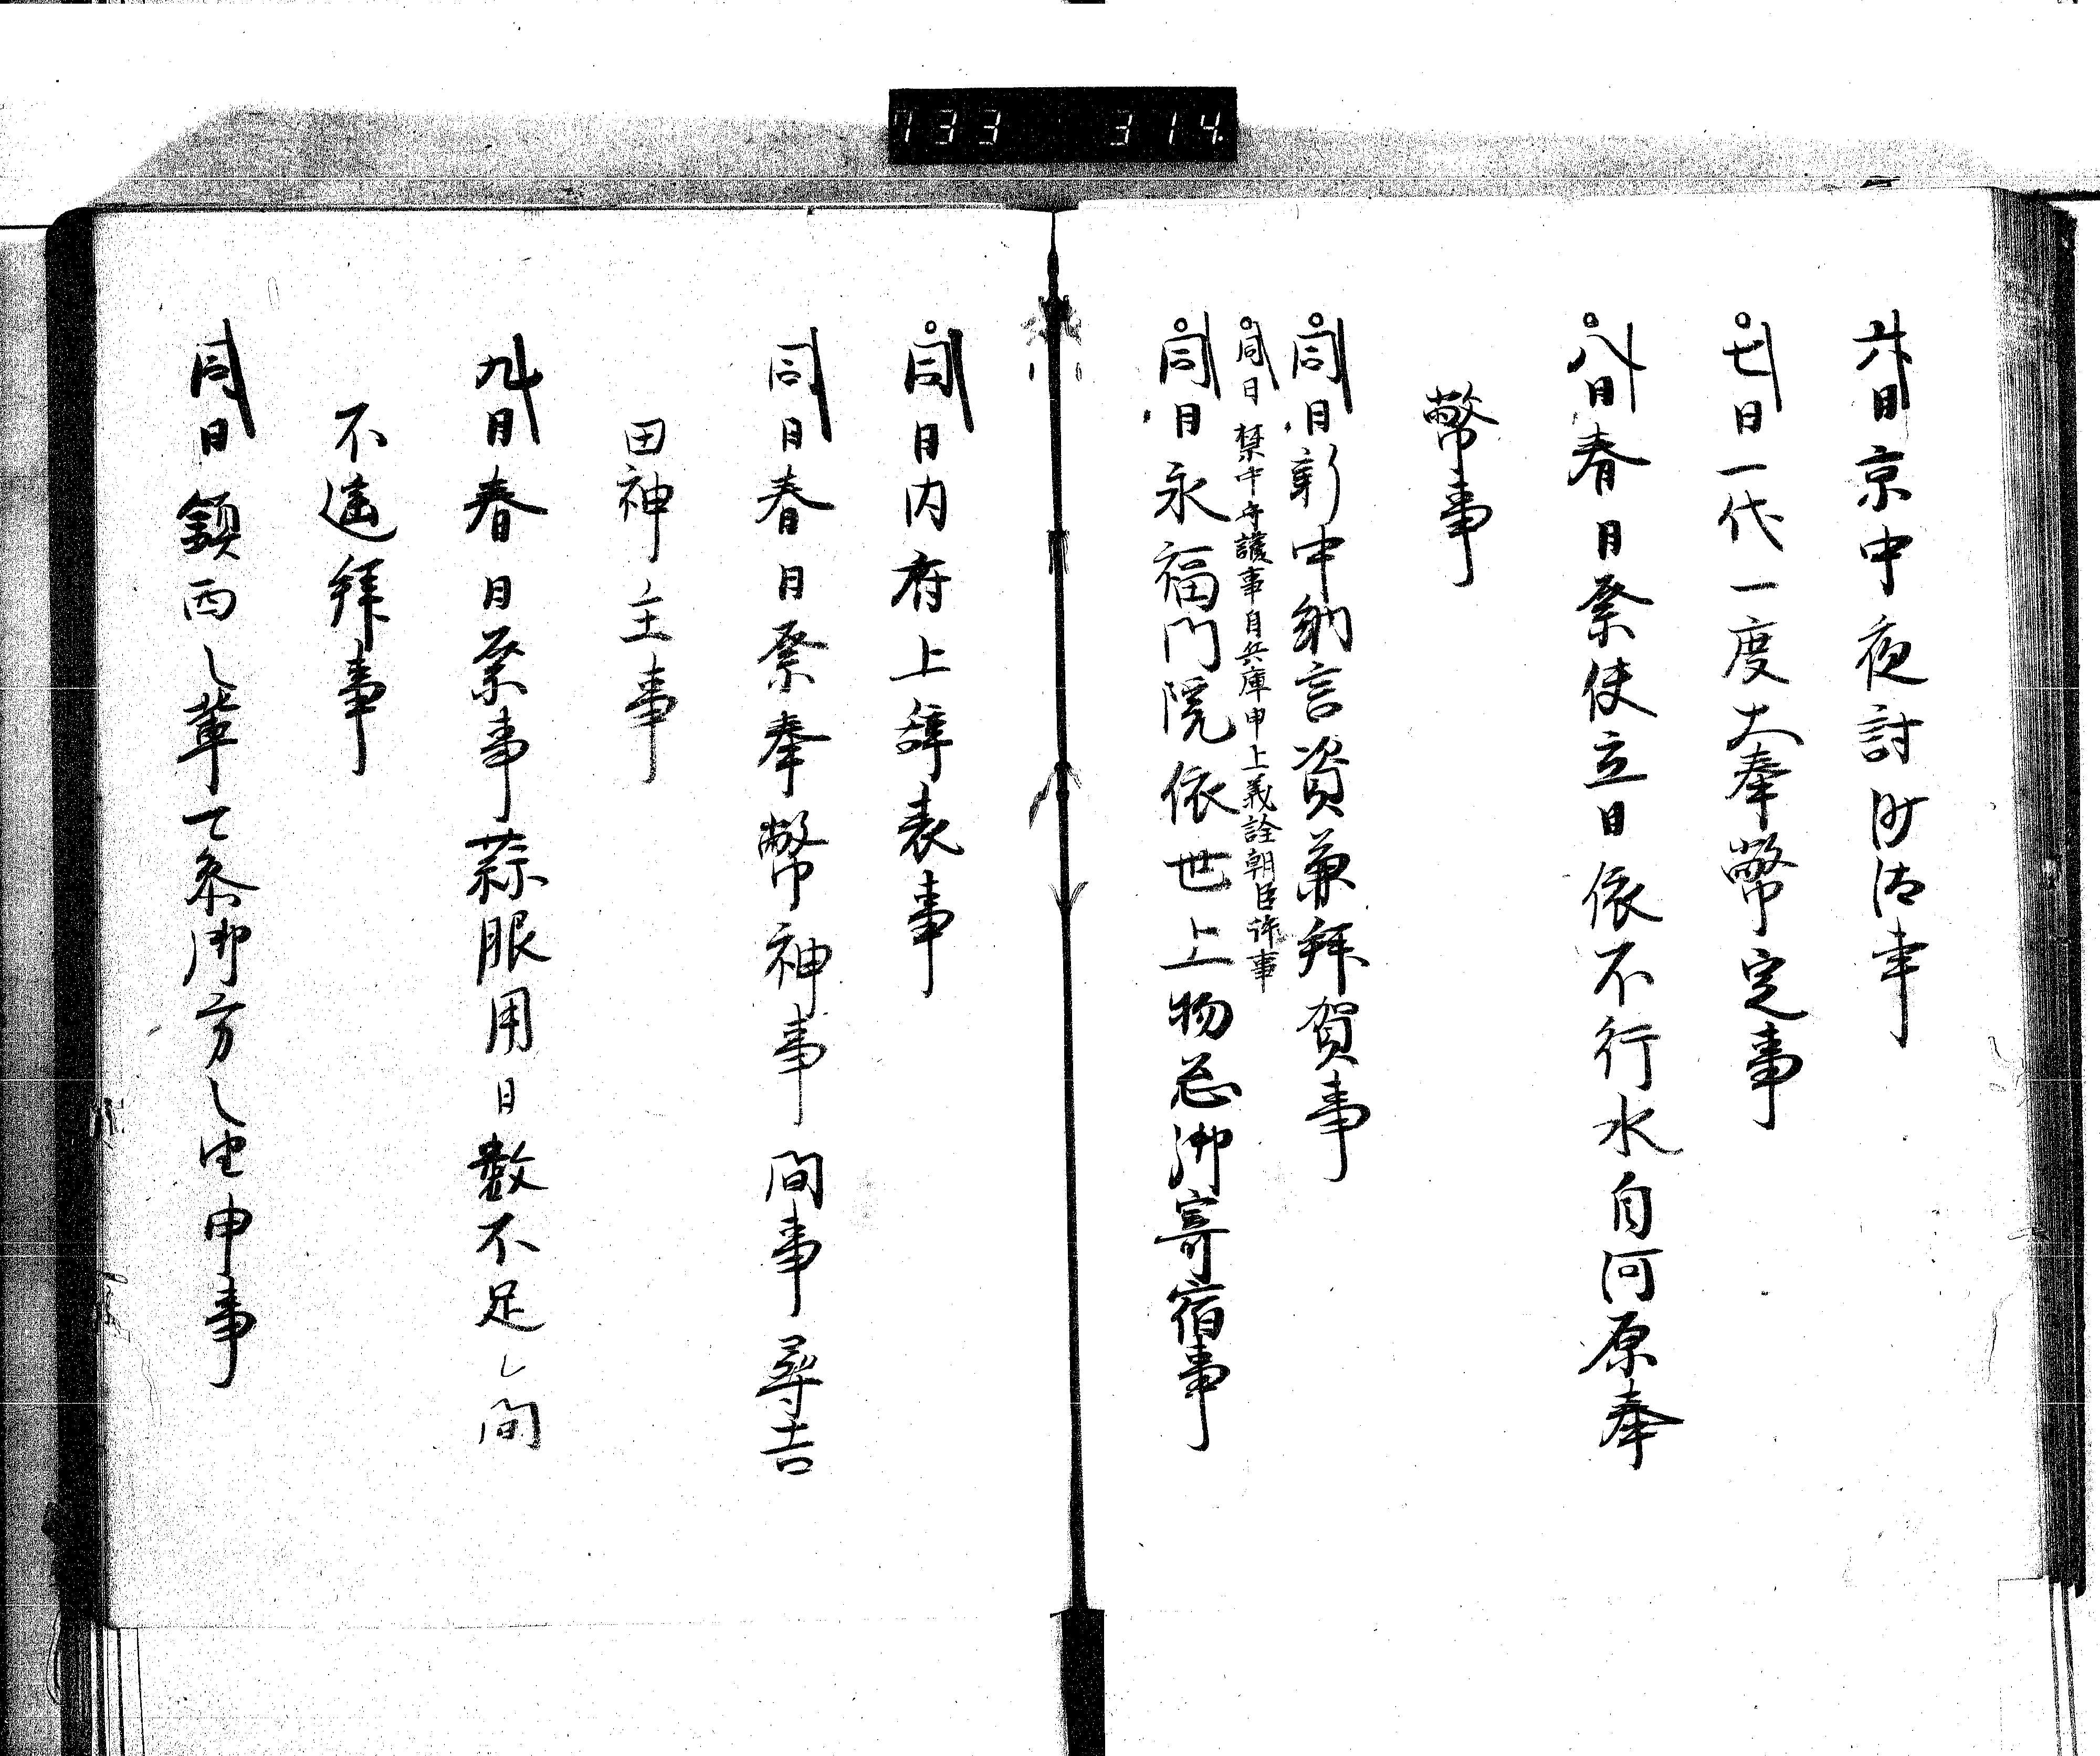 733 314
六日京中夜討沙汰事
七日一代一度大奉幣定事
八日春日祭使立日依不行水自河原奉
幣事
同日新中納言資兼拜賀事
同日禁中守護事自兵庫申上義詮朝臣許事
同日永福門院依世上物忩御寄宿事
同日内府上辞表事
同日春日祭奉幣神事間事尋吉
田神主事
九日春日祭事蒜服用日数不足之間
不遥拜事
同日鎮西之輩可参御方之由申事